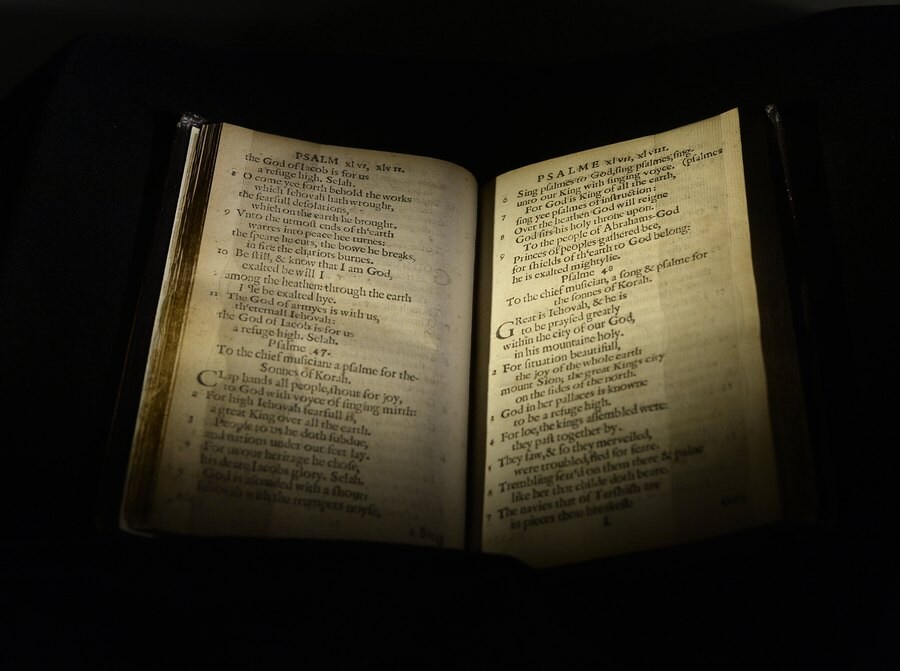 PSALM xlvi, xlvii.
the God of Iacob is for us
a refuge high. Selah.
8 O come yee forth behold the works
which Iehovah hath wrought,
the fearfull deſolations,
which on the earth he brought.
9 Vnto the utmoſt ends of th'earth
warres into peace hee turnes:
the ſpeare he cuts, the bowe he breaks,
in fire the chariots burnes.
10 Be ſtill, & know that I am God,
exalted be will I
among the heathen: through the earth
I'le be exalted hye.
11 The God of armyes is with us,
th'eternall Iehovah:
the God of Iacob is for us
a refuge high. Selah.
Pſalme 47.
To the chief muſician: a pſalme for the
Sonnes of Korah.
CLap hands all people, ſhout for joy,
to God with voyce of ſinging mirth:
2 For high Iehovah fearfull is,
a great King over all the earth.
3 People to us he doth ſubdue,
and nations under our feet lay.
4 For us our heritage he choſe,
his deare Iacobs glory. Selah.
5 God is aſcended with a ſhout:
Iehovah with the trumpets noyſe,
6 Sing
PSALME xlvii, xlviii.
6 Sing pſalmes to God, ſing pſalmes, ſing
unto our King with ſinging voyce. (pſalmes
7 For God is King of all the earth,
ſing yee pſalmes of inſtruction:
8 Over the heathen God will reigne
God ſits his holy throne upon.
9 To the people of Abrahams God
Princes of peoples gathered bee,
for ſhields of th'earth to God belong:
he is exalted mightylie.
Pſalme 48
To the chief muſician, a ſong & pſalme for
the ſonnes of Korah.
GReat is Iehovah, & he is
to be prayſed greatly
within the city of our God,
in his mountaine holy.
2 For ſituation beautifull,
the joy of the whole earth
mount Sion; the great Kings city
on the ſides of the north.
3 God in her pallaces is knowne
to be a refuge high.
4 For loe, the kings aſſembled were:
they paſt together by.
5 They ſaw, & ſo they merveiled,
were troubled, fled for feare.
6 Trembling ſeiz'd on them there & paine
like her that childe doth beare.
7 The navies that of Tarſhiſh are
in pieces thou breakeſt: